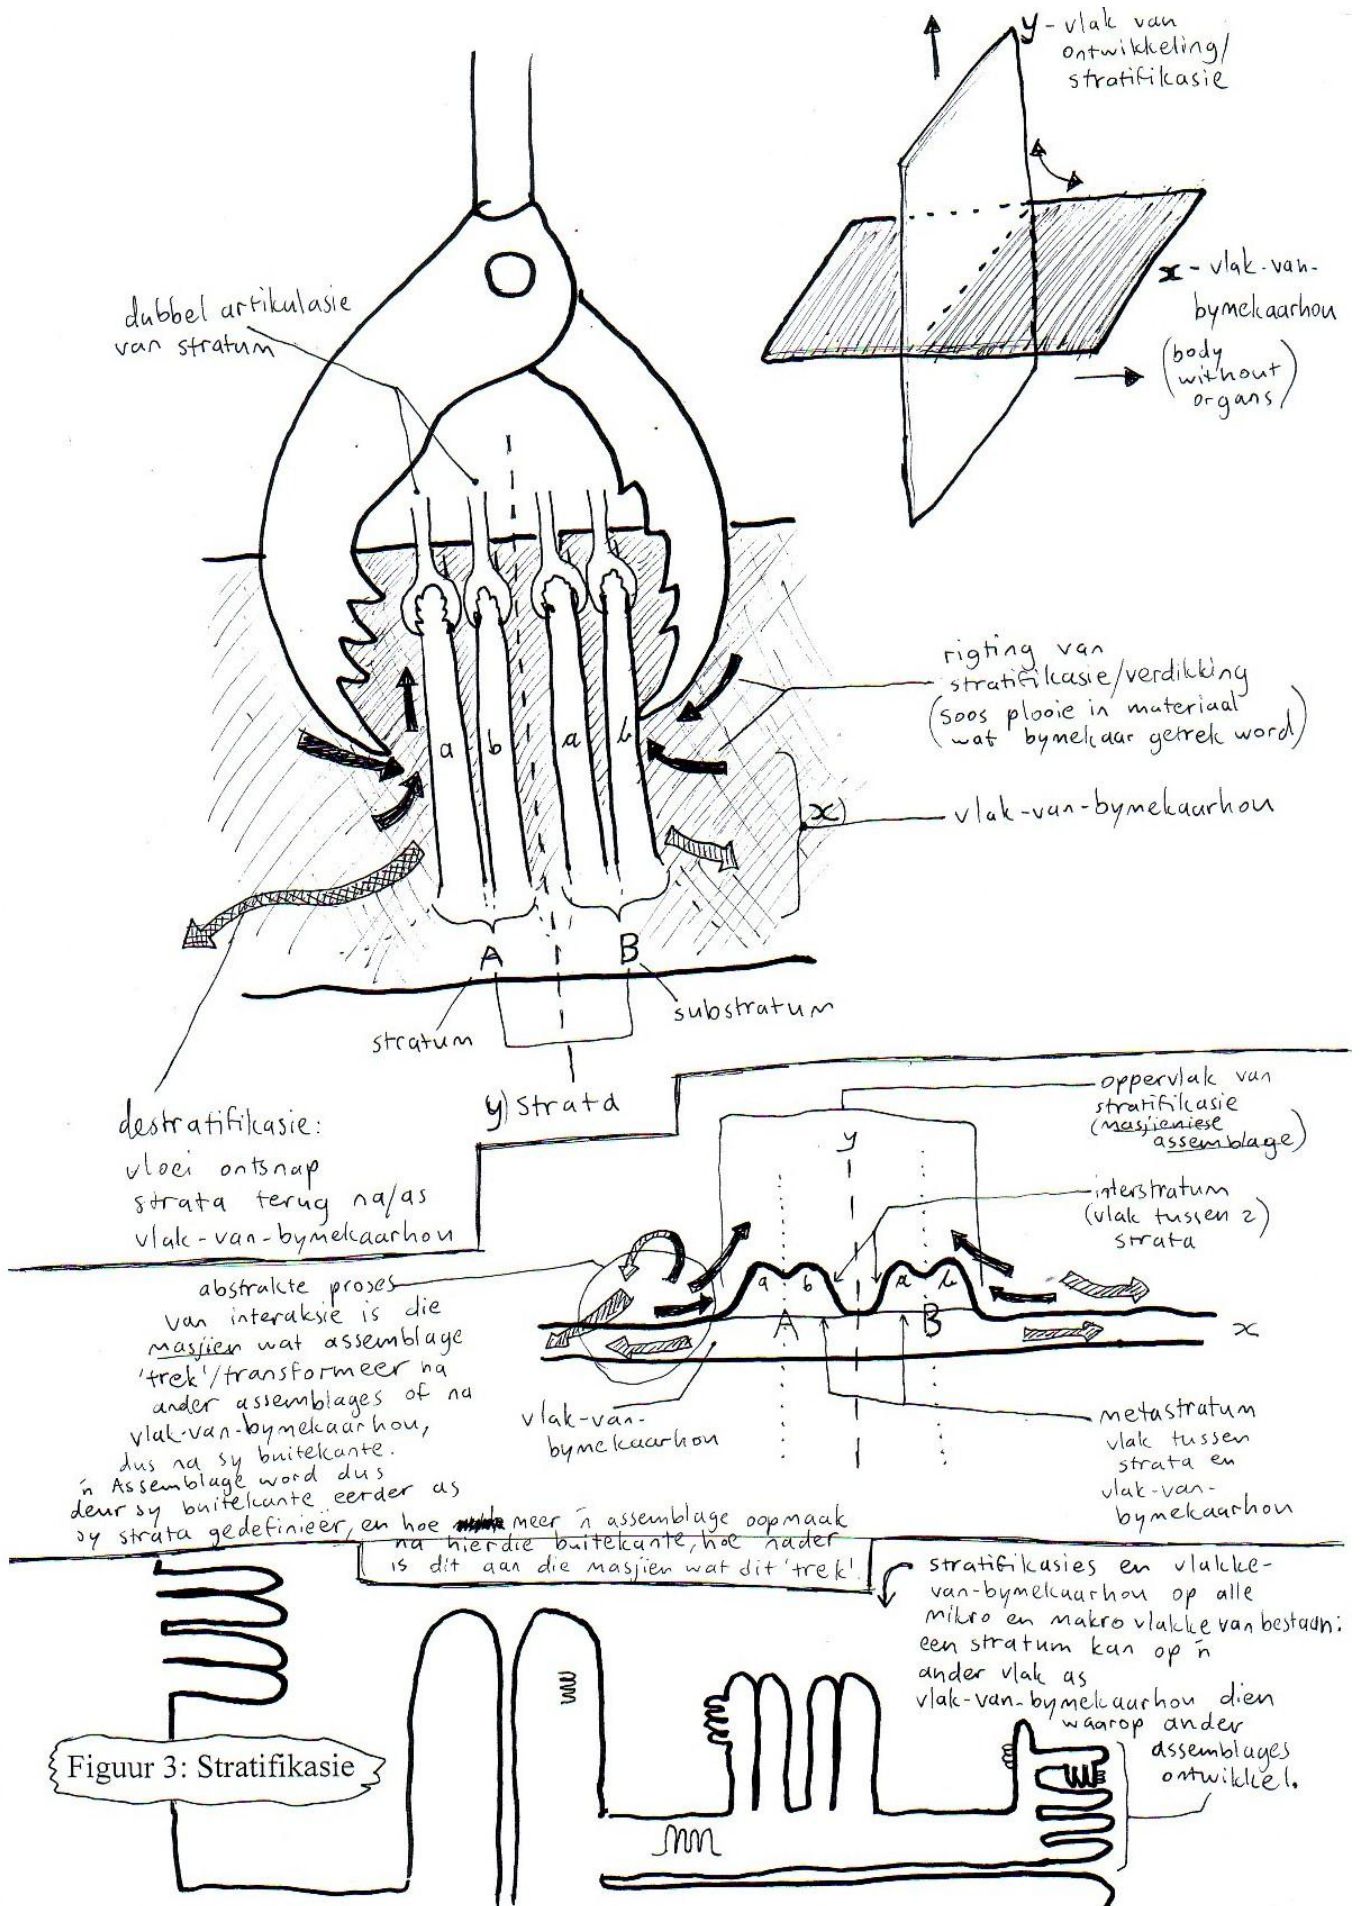 y - vlak van
ontwikkeling/
stratifikasie
x - vlak-van-
bymekaarhou
(body
without
organs)
dubbel artikulasie
van stratum
rigting van
stratifikasie/verdikking
(soos plooie in materiaal
wat bymekaar getrek word)
a b a b
x)
vlak-van-bymekaarhou
A B
stratum
substratum
y) Strata
destratifikasie:
vloei ontsnap
strata terug na/as
vlak-van-bymekaarhou
oppervlak van
stratifikasie
(masjieniese
assemblage)
y
interstratum
(vlak tussen 2)
strata
a b a b
A B
x
vlak-van-
bymekaarhou
metastratum
vlak tussen
strata en
vlak-van-
bymekaarhou
abstrakte proses
van interaksie is die
masjien wat assemblage
'trek'/transformeer na
ander assemblages of na
vlak-van-bymekaarhou,
dus na sy buitekante.
'n Assemblage word dus
deur sy buitekante eerder as
sy strata gedefinieër, en hoe meer 'n assemblage oopmaak
na hierdie buitekante, hoe nader
is dit aan die masjien wat dit 'trek'.
stratifikasies en vlakke-
van-bymekaarhou op alle
mikro en makro vlakke van bestaan:
een stratum kan op 'n
ander vlak as
vlak-van-bymekaarhou dien
waarop ander
assemblages
ontwikkel.
Figuur 3: Stratifikasie